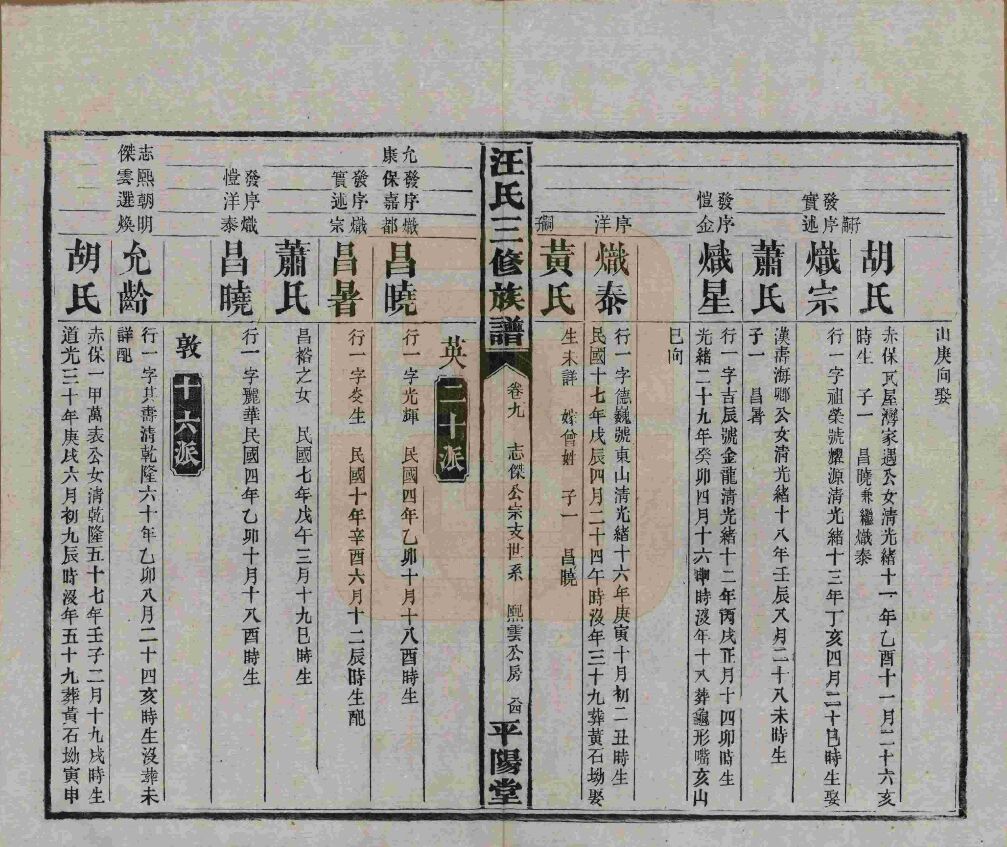 山庚向娶
胡氏
赤保瓦屋灣家遇公女清光緒十一年乙酉十一月二十六亥
時生 子一 昌曉兼繼熾泰
發序
實述
嗣
熾宗
行一字祖榮號耀源清光緒十三年丁亥四月二十巳時生娶
蕭氏
漢壽海鄉公女清光緒十八年壬辰八月二十八未時生
子一 昌暑
發序
愷金
熾星
行一字吉辰號金龍清光緒十二年丙戌正月十四卯時生
光緒二十九年癸卯四月十六申時沒年十八葬龜形嘴亥山
巳向
序
洋
熾泰
行一字德巍號東山清光緒十六年庚寅十月初二丑時生
民國十七年戊辰四月二十四午時沒年三十九葬黃石坳娶
嗣
黃氏
生未詳 嫁曾姓 子一 昌曉
汪氏三修族譜
卷九 志傑公宗支世系 熈雲公房
平陽堂
英 二十派
允發序熾
康保嘉都
昌曉
行一字光輝 民國四年乙卯十月十八酉時生
發序熾
實述宗
昌暑
行一字炎生 民國十年辛酉六月十二辰時生配
蕭氏
昌裕之女 民國七年戊午三月十九巳時生
發序熾
愷洋泰
昌曉
行一字麗華民國四年乙卯十月十八酉時生
敦 十六派
志熈朝明
傑雲選煥
允齡
行一字其壽清乾隆六十年乙卯八月二十四亥時生沒葬未
詳配
胡氏
赤保一甲萬表公女清乾隆五十七年壬子二月十九戌時生
道光三十年庚戌六月初九辰時沒年五十九葬黃石坳寅申